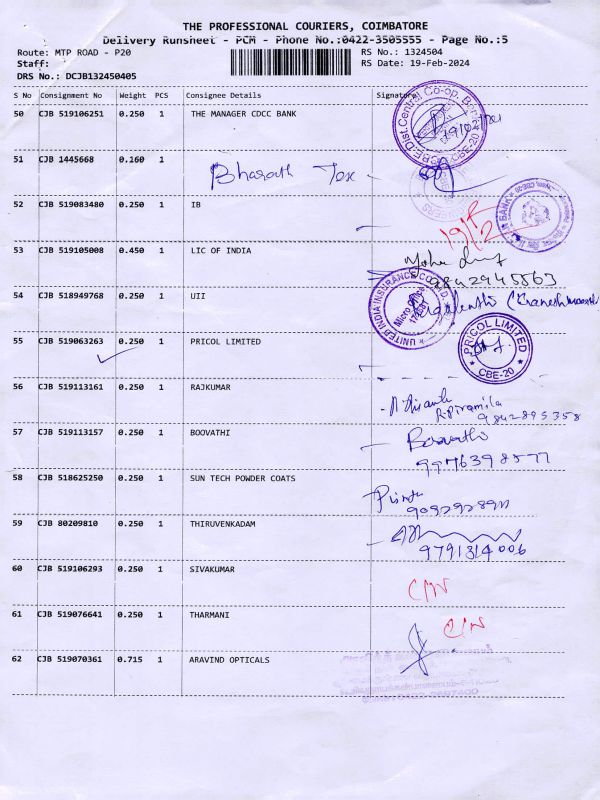 THE PROFESSIONAL COURIERS, COIMBATORE
Delivery Runsheet - PCM - Phone No.:0422-3505555 - Page No.:5
Route: MTP ROAD - P20 RS No.: 1324504
Staff: RS Date: 19-Feb-2024
DRS No.: DCJB132450405
S No Consignment No Weight PCS Consignee Details Signature
50 CJB 519106251 0.250 1 THE MANAGER CDCC BANK
51 CJB 1445668 0.160 1
Bharath Tex -
52 CJB 519083480 0.250 1 IB
19/2
53 CJB 519105008 0.450 1 LIC OF INDIA
9842945563
54 CJB 518949768 0.250 1 UII
UNITED INDIA INSURANCE CO
Micro Office
55 CJB 519063263 0.250 1 PRICOL LIMITED
PRICOL LIMITED
* CBE-20 *
56 CJB 519113161 0.250 1 RAJKUMAR
R. Piramila
9842895358
57 CJB 519113157 0.250 1 BOOVATHI
Boovathi
9976398577
58 CJB 518625250 0.250 1 SUN TECH POWDER COATS
59 CJB 80209810 0.250 1 THIRUVENKADAM
9791314006
60 CJB 519106293 0.250 1 SIVAKUMAR
C/N
61 CJB 519076641 0.250 1 THARMANI
C/N
62 CJB 519070361 0.715 1 ARAVIND OPTICALS